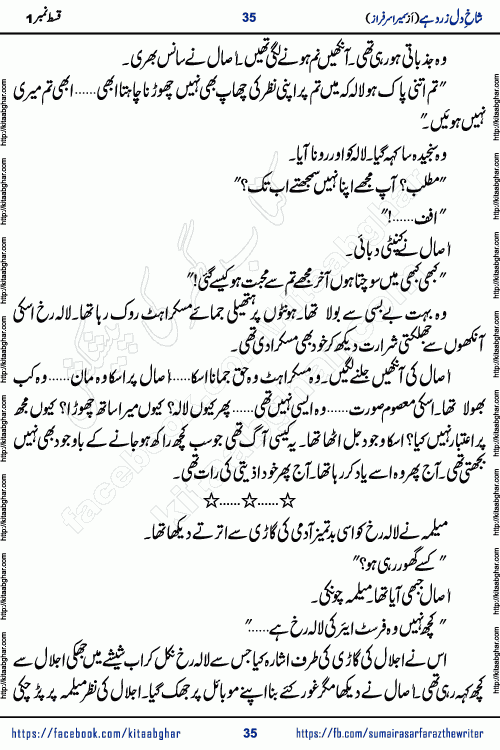 شاخِ دل زرد ہے (از سمیرا سرفراز) 35 قسط نمبر 1
وہ جذباتی ہو رہی تھی۔ آنکھیں نم ہونے لگی تھیں۔ اصال نے سانس بھری۔
"تم اتنی پاک ہو لالہ کہ میں تم پر اپنی نظر کی چھاپ بھی نہیں چھوڑنا چاہتا ابھی...... ابھی تم میری
نہیں ہوئیں۔"
وہ سنجیدہ سا کہہ گیا۔ لالہ کو اور رونا آیا۔
"مطلب؟ آپ مجھے اپنا نہیں سمجھتے اب تک؟"
"اف......!"
اصال نے کنپٹی دبائی۔
"کبھی کبھی میں سوچتا ہوں آخر مجھے تم سے محبت ہو کیسے گئی!"
وہ بہت بے بسی سے بولا تھا۔ ہونٹوں پر ہتھیلی جمائے مسکراہٹ روک رہا تھا۔ لالہ رخ اسکی
آنکھوں سے جھلکتی شرارت دیکھ کر خود بھی مسکرا دی تھی۔
اصال کی آنکھیں جلنے لگیں۔ وہ مسکراہٹ وہ حق جمانا اسکا...... اصال پر اسکا وہ مان...... وہ کب
بھولا تھا۔ اسکی معصوم صورت...... وہ ایسی نہیں تھی...... پھر کیوں لالہ؟ کیوں میرا ساتھ چھوڑا؟ کیوں مجھ
پر اعتبار نہیں کیا؟ اسکا وجود جل اٹھا تھا۔ یہ کیسی آگ تھی جو سب کچھ راکھ ہو جانے کے باوجود بھی نہیں
بجھتی تھی۔ آج پھر وہ اسے یاد کر رہا تھا۔ آج پھر خود اذیتی کی رات تھی۔
☆......☆......☆
میلمہ نے لالہ رخ کو اسی بدتمیز آدمی کی گاڑی سے اترتے دیکھا تھا۔
"کسے گھور رہی ہو؟"
اصال جبھی آیا تھا۔ میلمہ چونکی۔
"کچھ نہیں وہ فرسٹ ایئر کی لالہ رخ ہے......"
اس نے اجلال کی گاڑی کی طرف اشارہ کیا جس سے لالہ رخ نکل کر اب شیشے میں جھکی اجلال سے
کچھ کہہ رہی تھی۔ اصال نے دیکھا مگر غور کئے بنا اپنے موبائل پر جھک گیا۔ اجلال کی نظر میلمہ پر پڑ چکی
https://facebook.com/kitaabghar 35 https://fb.com/sumairasarfarazthewriter
http://kitaabghar.com